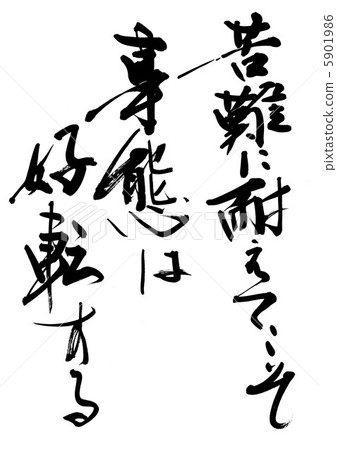 苦難に耐えてこそ
事態は
好転する
PIXTA
5901986